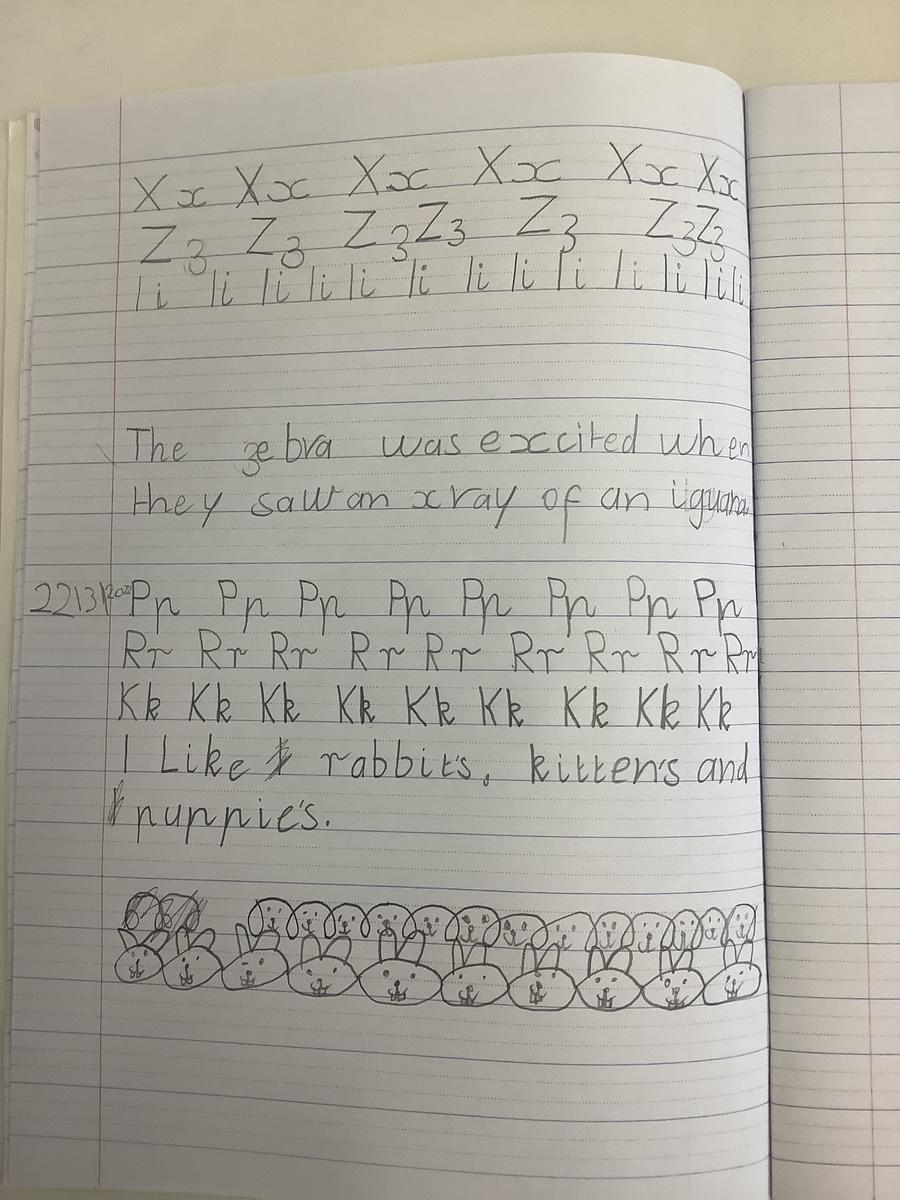 Xx Xx Xx Xx Xx Xx
Zz Zz Zz Zz Zz Zz Zz
Ii Ii Ii Ii Ii Ii Ii Ii Ii Ii Ii Ii Ii
The zebra was excited when
they saw an x ray of an iiguana
22/3/2022 Pp Pp Pp Pp Pp Pp Pp Pp
Rr Rr Rr Rr Rr Rr Rr Rr Rr
Kk Kk Kk Kk Kk Kk Kk Kk Kk
I Like rabbit's, kitten's and
puppie's.